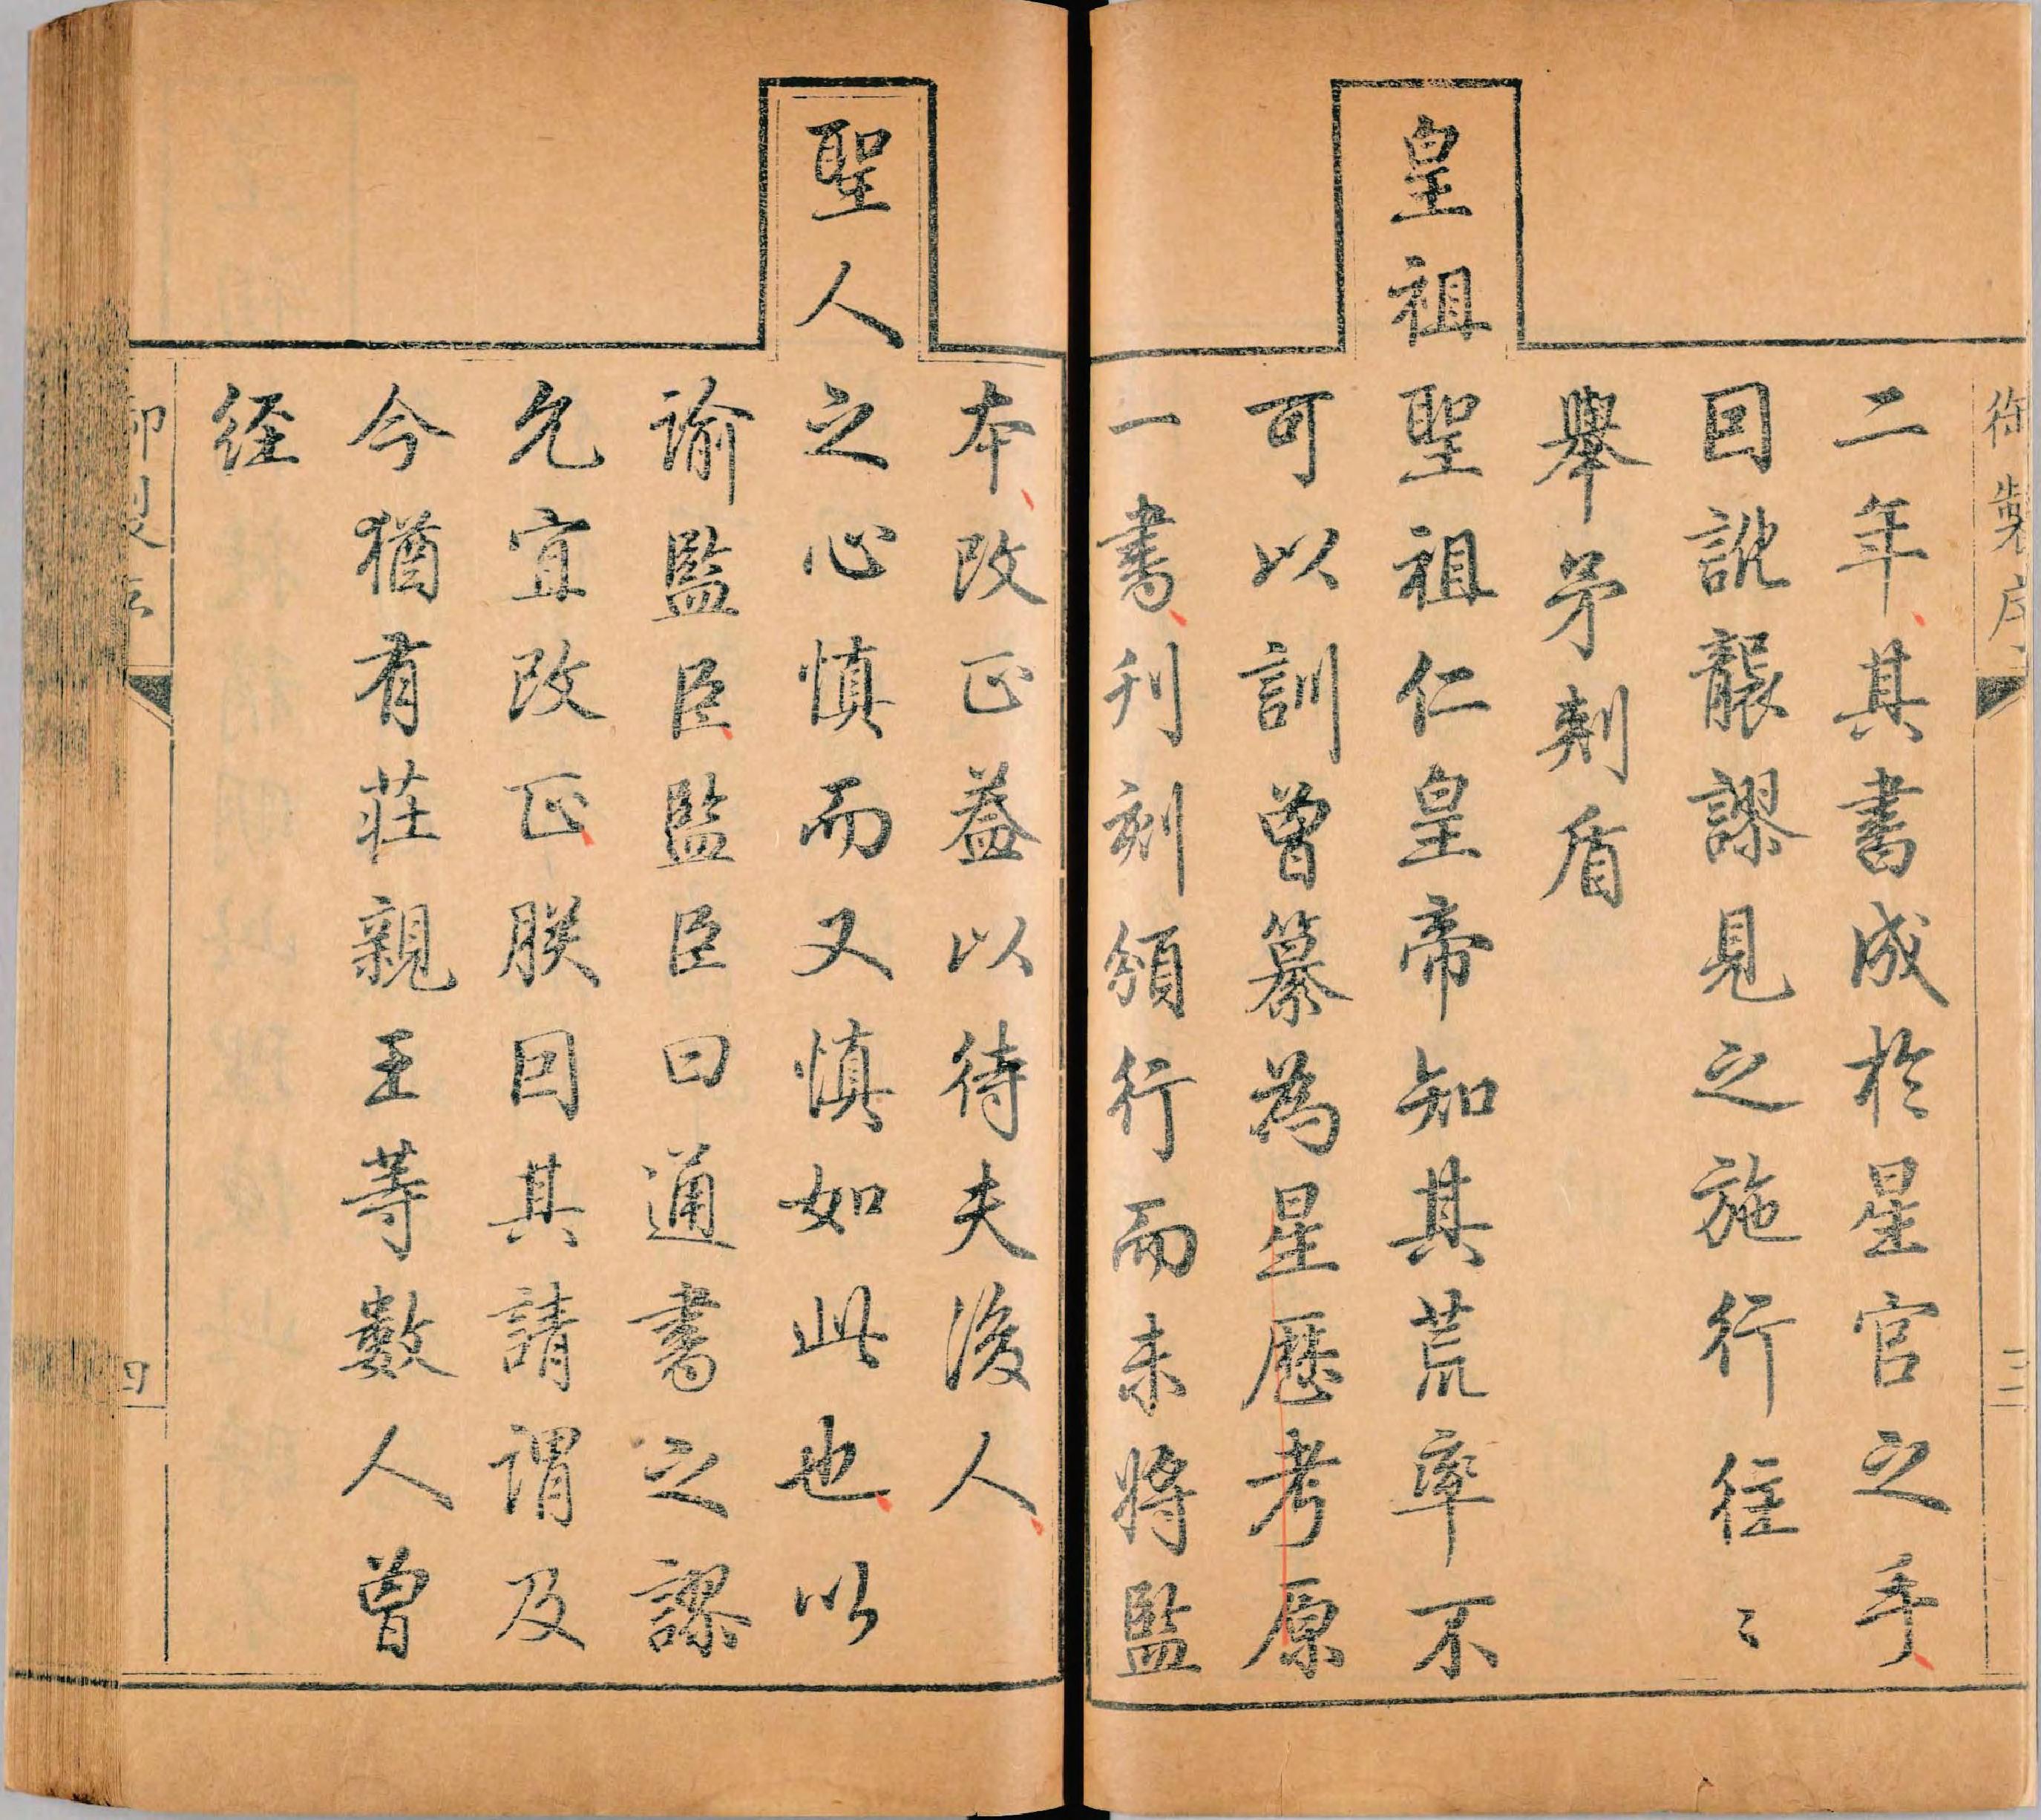 御製序
三
二年其書成於星官之手
因訛襲謬見之施行往〻
舉矛刺盾
皇祖聖祖仁皇帝知其荒率不
可以訓曾纂為星歷考原
一書刊刻頒行而未將監
本改正葢以待夫後人
聖人之心慎而又慎如此也以
諭監臣監臣曰通書之謬
允宜改正朕因其請謂及
今猶有莊親王等數人曾
经
御製序
四